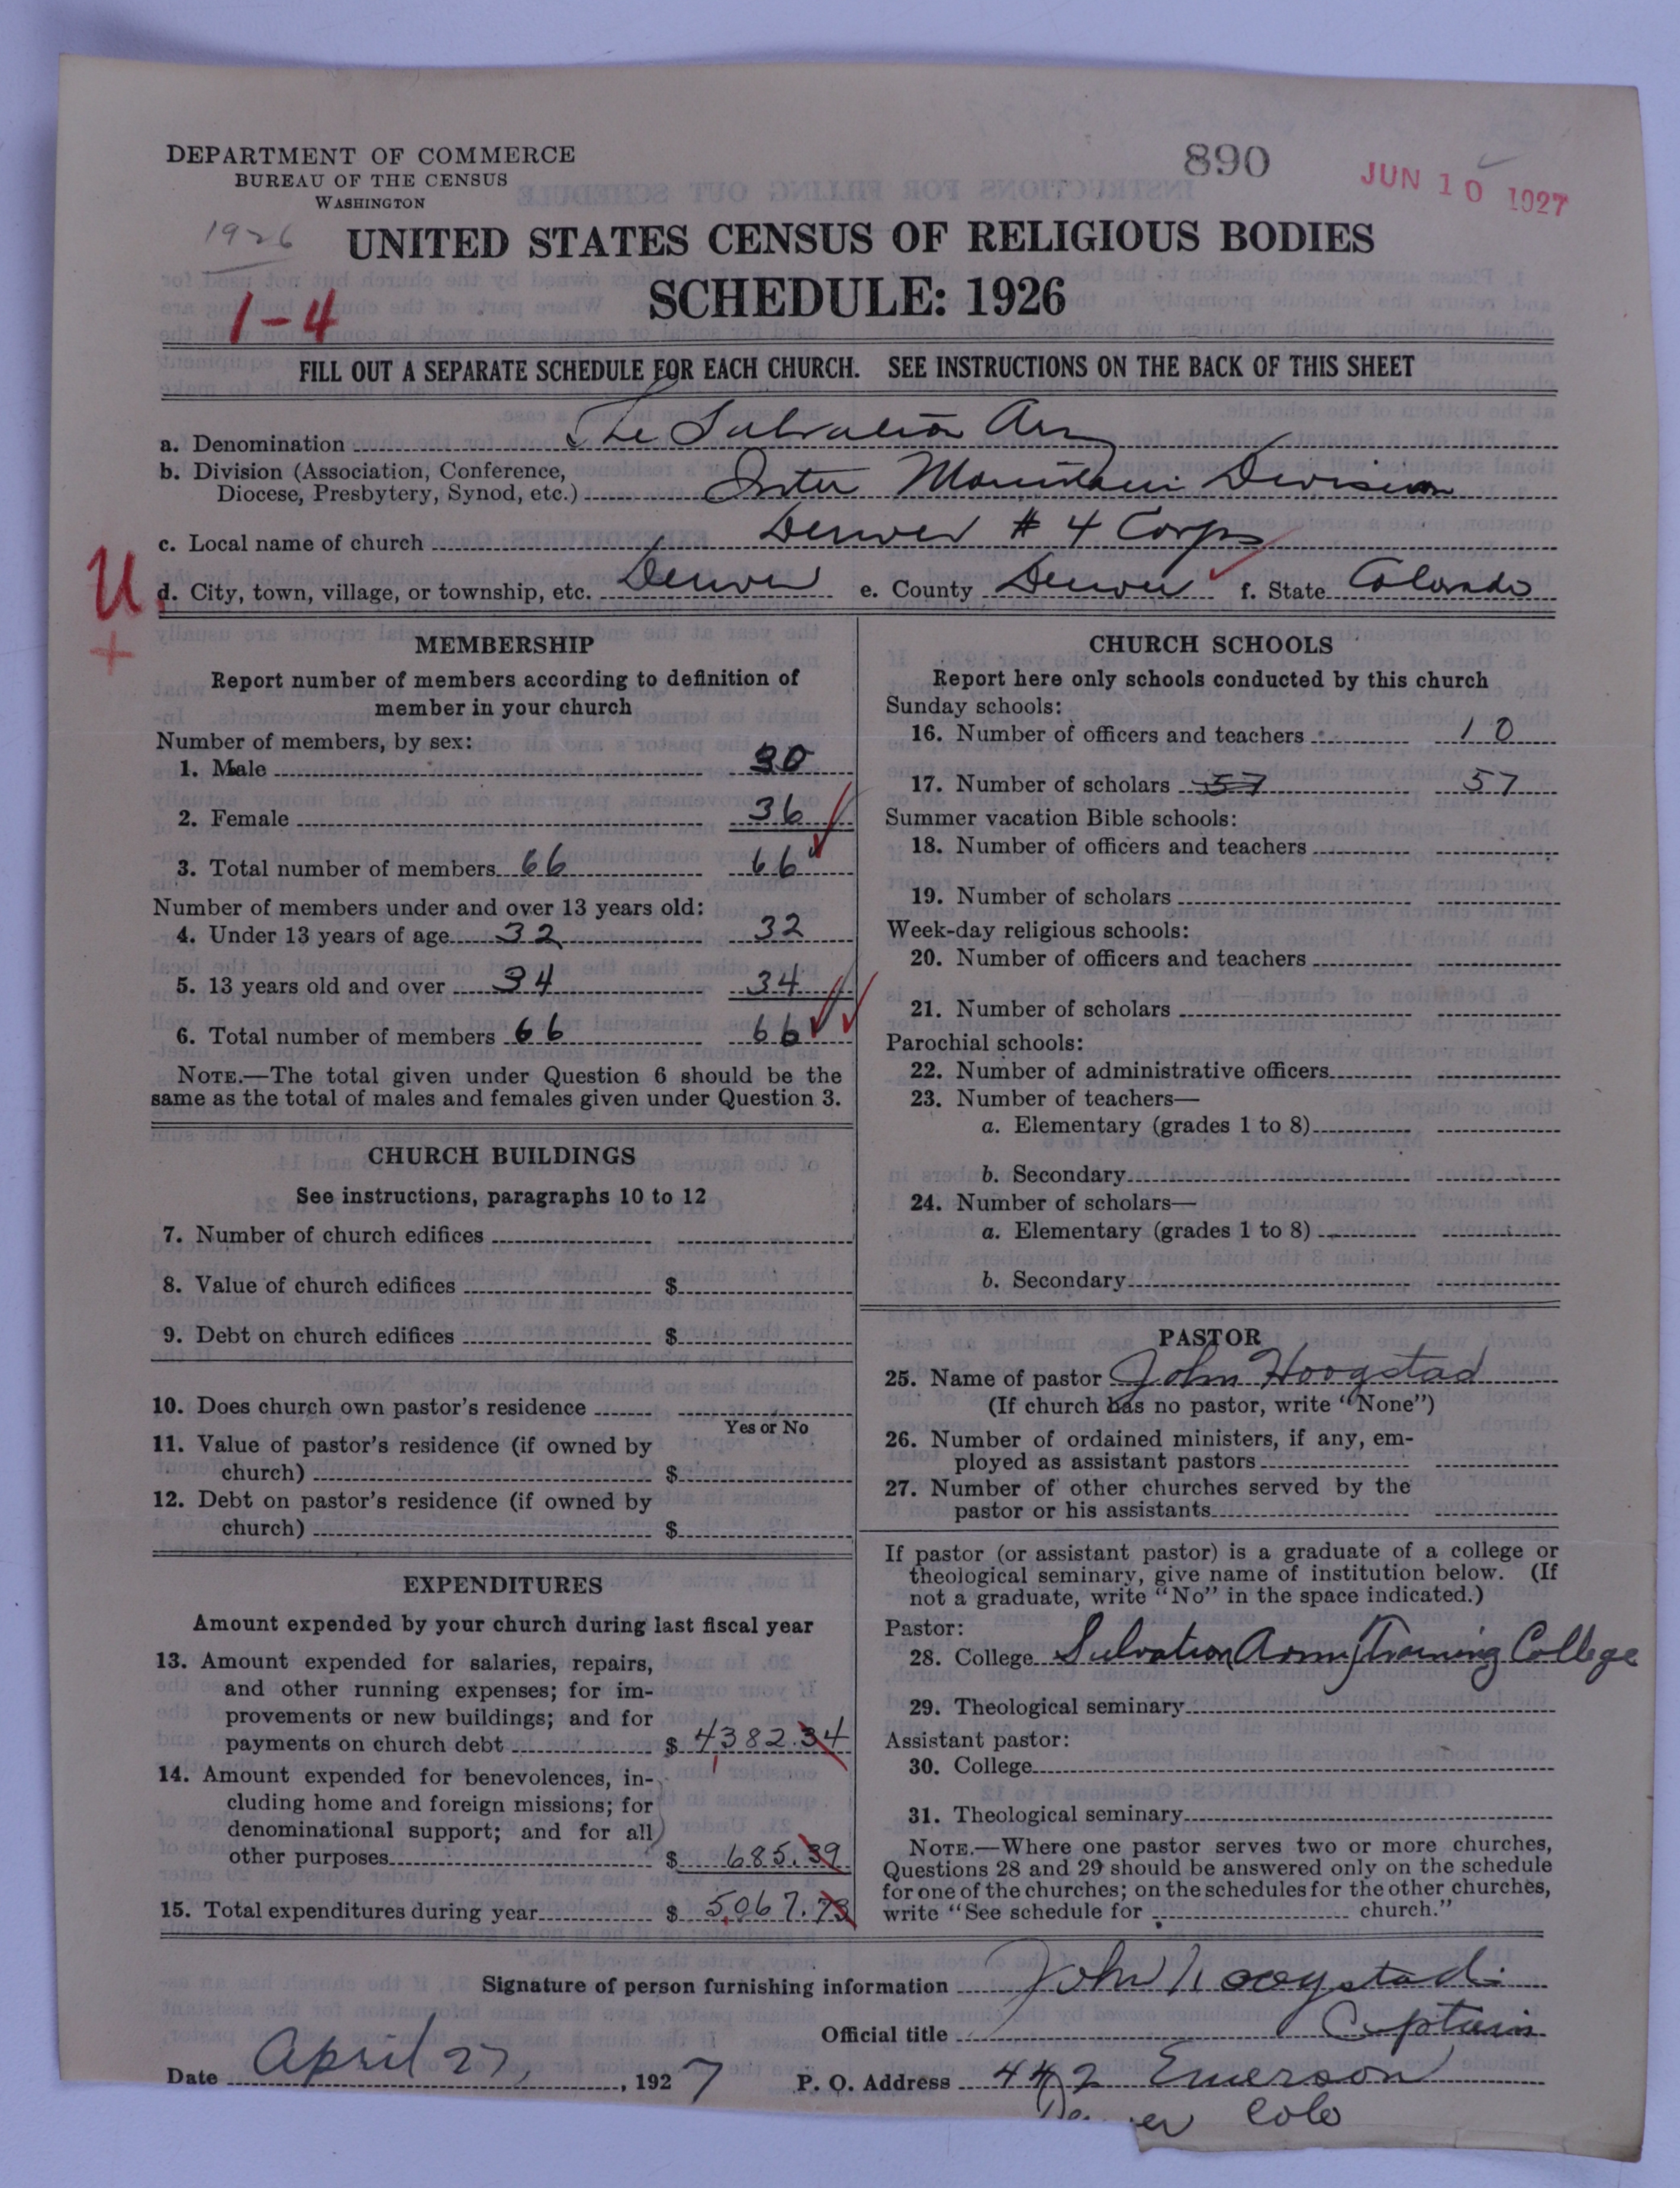 DEPARTMENT OF COMMERCE
BUREAU OF THE CENSUS
WASHINGTON
890
JUN 10 1927
1926
UNITED STATES CENSUS OF RELIGIOUS BODIES
SCHEDULE: 1926
1-4
FILL OUT A SEPARATE SCHEDULE FOR EACH CHURCH. SEE INSTRUCTIONS ON THE BACK OF THIS SHEET
a. Denomination The Salvation Army
b. Division (Association, Conference,
Diocese, Presbytery, Synod, etc.) Inter Mountain Division
c. Local name of church Denver # 4 Corps
U
d. City, town, village, or township, etc. Denver e. County Denver f. State Colorado
+
MEMBERSHIP
Report number of members according to definition of
member in your church
Number of members, by sex:
1. Male 30
2. Female 36
3. Total number of members 66 66
Number of members under and over 13 years old:
4. Under 13 years of age 32 32
5. 13 years old and over 34 34
6. Total number of members 66 66
NOTE.—The total given under Question 6 should be the
same as the total of males and females given under Question 3.
CHURCH BUILDINGS
See instructions, paragraphs 10 to 12
7. Number of church edifices
8. Value of church edifices $
9. Debt on church edifices $
10. Does church own pastor's residence
Yes or No
11. Value of pastor's residence (if owned by
church) $
12. Debt on pastor's residence (if owned by
church) $
EXPENDITURES
Amount expended by your church during last fiscal year
13. Amount expended for salaries, repairs,
and other running expenses; for im-
provements or new buildings; and for
payments on church debt $ 4382.34
14. Amount expended for benevolences, in-
cluding home and foreign missions; for
denominational support; and for all
other purposes $ 685.39
15. Total expenditures during year $ 5,067.73
CHURCH SCHOOLS
Report here only schools conducted by this church
Sunday schools:
16. Number of officers and teachers 10
17. Number of scholars 57 57
Summer vacation Bible schools:
18. Number of officers and teachers
19. Number of scholars
Week-day religious schools:
20. Number of officers and teachers
21. Number of scholars
Parochial schools:
22. Number of administrative officers
23. Number of teachers—
a. Elementary (grades 1 to 8)
b. Secondary
24. Number of scholars—
a. Elementary (grades 1 to 8)
b. Secondary
PASTOR
25. Name of pastor John Hoogstad
(If church has no pastor, write "None")
26. Number of ordained ministers, if any, em-
ployed as assistant pastors
27. Number of other churches served by the
pastor or his assistants
If pastor (or assistant pastor) is a graduate of a college or
theological seminary, give name of institution below. (If
not a graduate, write "No" in the space indicated.)
Pastor:
28. College Salvation Army Training College
29. Theological seminary
Assistant pastor:
30. College
31. Theological seminary
NOTE.—Where one pastor serves two or more churches,
Questions 28 and 29 should be answered only on the schedule
for one of the churches; on the schedules for the other churches,
write "See schedule for church."
Signature of person furnishing information John Hoogstad
Official title Captain
Date April 27, 1927 P. O. Address 442 Emerson
Denver Colo